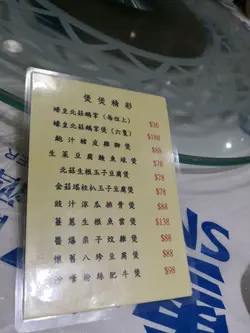 煲煲精彩
蠔皇北菇鵝掌（每位上） $36
蠔皇北菇鵝掌煲（六隻） $188
鮑汁豬皮雞腳煲 $88
生菜豆腐鯪魚球煲 $78
北菇生根玉子豆腐煲 $78
金菇瑤柱扒玉子豆腐煲 $78
豉汁涼瓜排骨煲 $88
薑蔥生根魚雲煲 $138
醬爆栗子炆雞煲 $88
懷舊八珍豆腐煲 $88
沙爹粉絲肥牛煲 $98